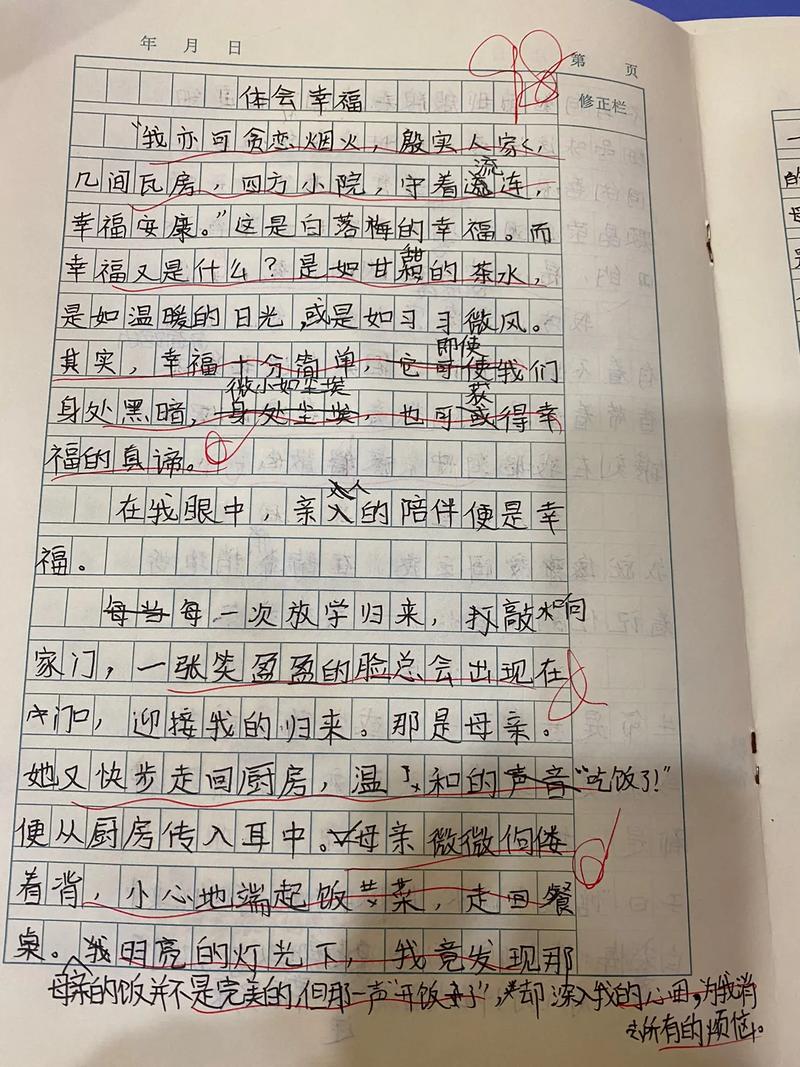 年 月 日
98
第 页
修正栏
体会幸福
“我亦可贪恋烟火，殷实人家，
几间瓦房，四方小院，守着流连，
幸福安康。”这是白落梅的幸福。而
幸福又是什么？是如甘甜的茶水，
是如温暖的日光，或是如习习微风。
其实，幸福十分简单，它即使我们
身处黑暗，微小如尘埃，也可获得幸
福的真谛。
在我眼中，亲人的陪伴便是幸
福。
每二次放学归来，敲响
家门，一张笑盈盈的脸总会出现在
门口，迎接我的归来。那是母亲。
她又快步走回厨房，温和的“吃饭了！”
便从厨房传入耳中。母亲微微佝偻
着背，小心地端起饭菜，走回餐
桌。明亮的灯光下，我竟发现那
母亲的饭并不是完美的，但那一声“开饭了”，却深入我的心田，为我消
去所有的烦恼。